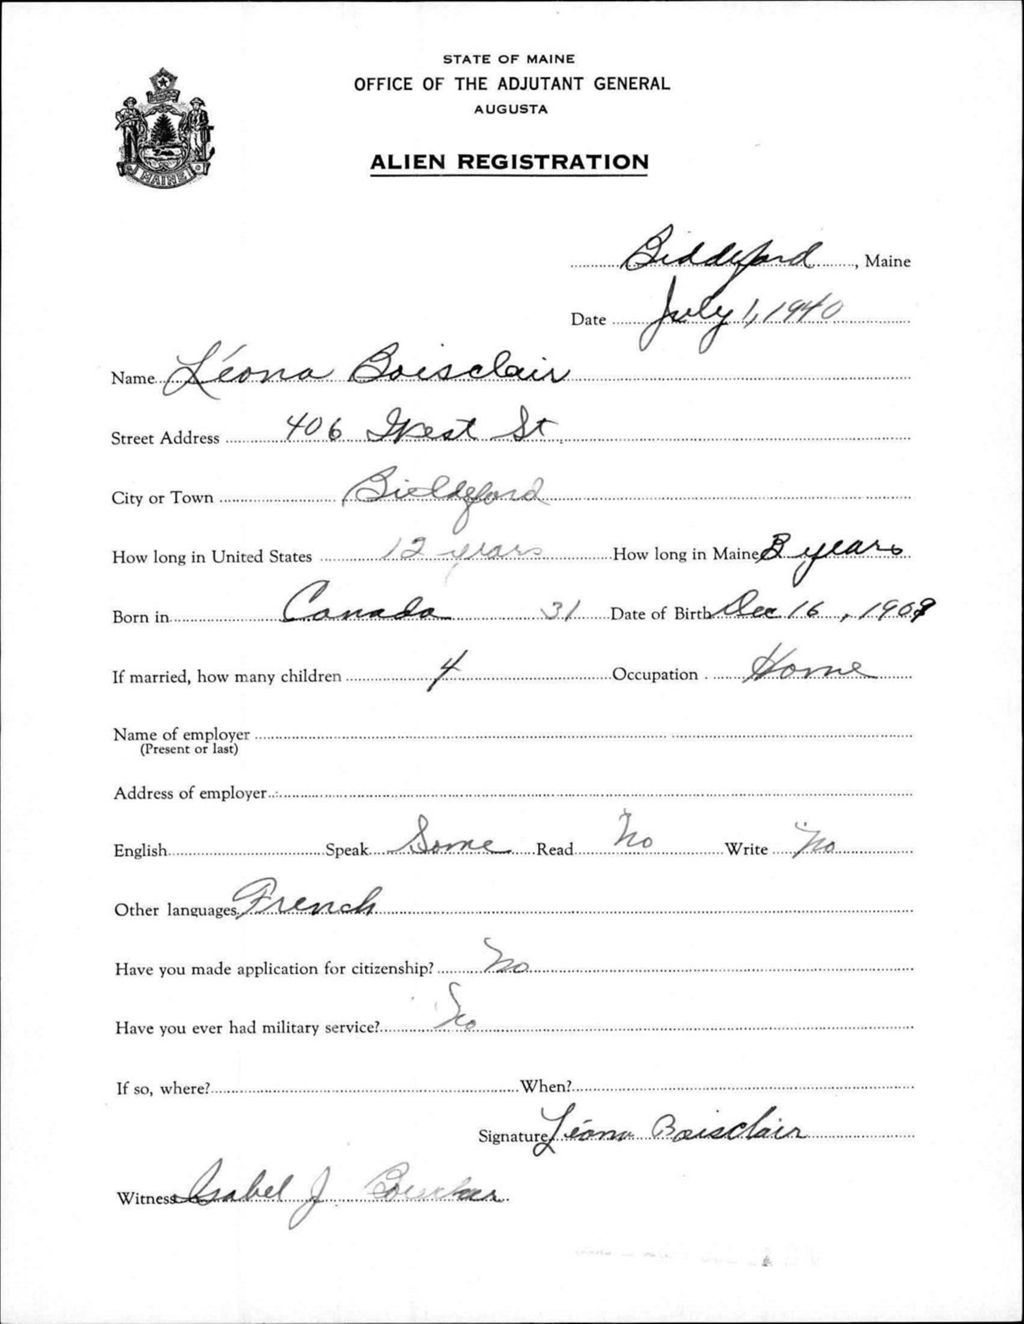 STATE OF MAINE
OFFICE OF THE ADJUTANT GENERAL
AUGUSTA
ALIEN REGISTRATION
MAINE
Biddeford, Maine
Date July 1, 1940
Name Léona Boisclair
Street Address 406 West St
City or Town Biddeford
How long in United States 12 years How long in Maine 3 years
Born in Canada 31 Date of Birth Dec 16, 1909
If married, how many children 4 Occupation Home
Name of employer
(Present or last)
Address of employer
English Speak Some Read No Write No
Other languages French
Have you made application for citizenship? No
Have you ever had military service? No
If so, where? When?
Signature Léona Boisclair
Witness Isabel J.